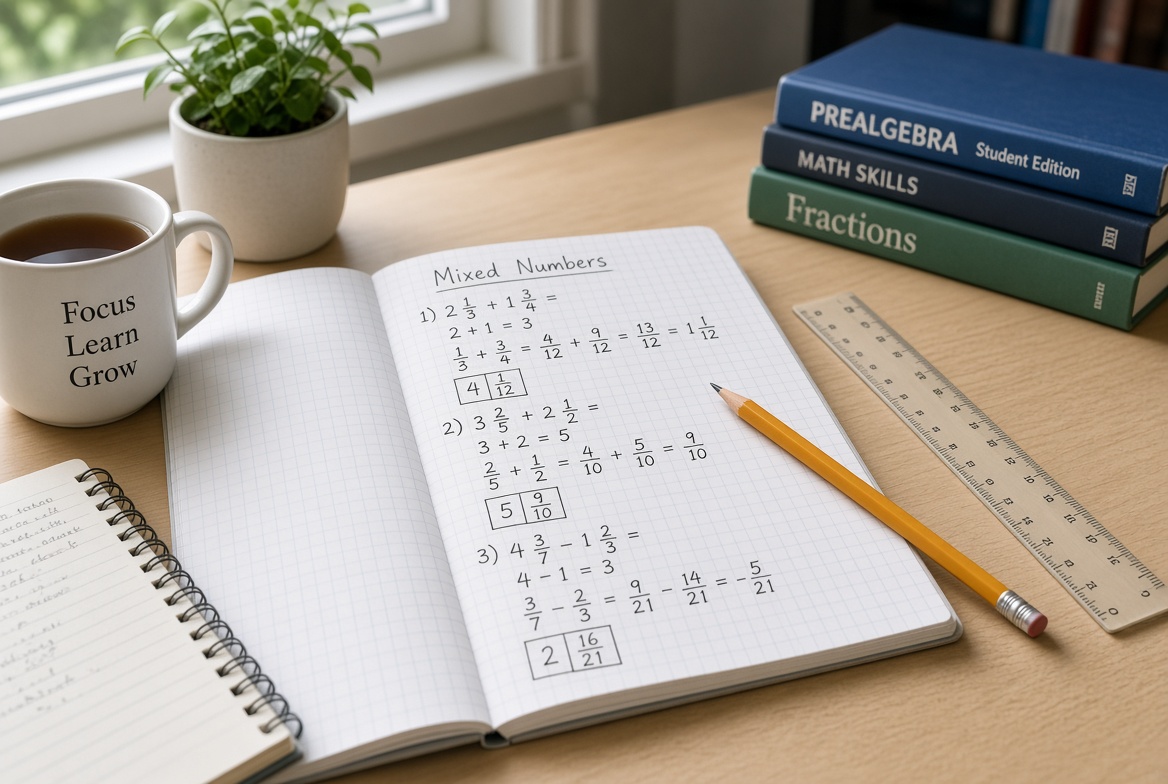 Focus
Learn
Grow
PREALGEBRA Student Edition
MATH SKILLS
Fractions
Mixed Numbers
1) 2 1/3 + 1 3/4 =
2 + 1 = 3
1/3 + 3/4 = 4/12 + 9/12 = 13/12 = 1 1/12
4 1/12
2) 3 2/5 + 2 1/2 =
3 + 2 = 5
2/5 + 1/2 = 4/10 + 5/10 = 9/10
5 9/10
3) 4 3/7 - 1 2/3 =
4 - 1 = 3
3/7 - 2/3 = 9/21 - 14/21 = -5/21
2 16/21